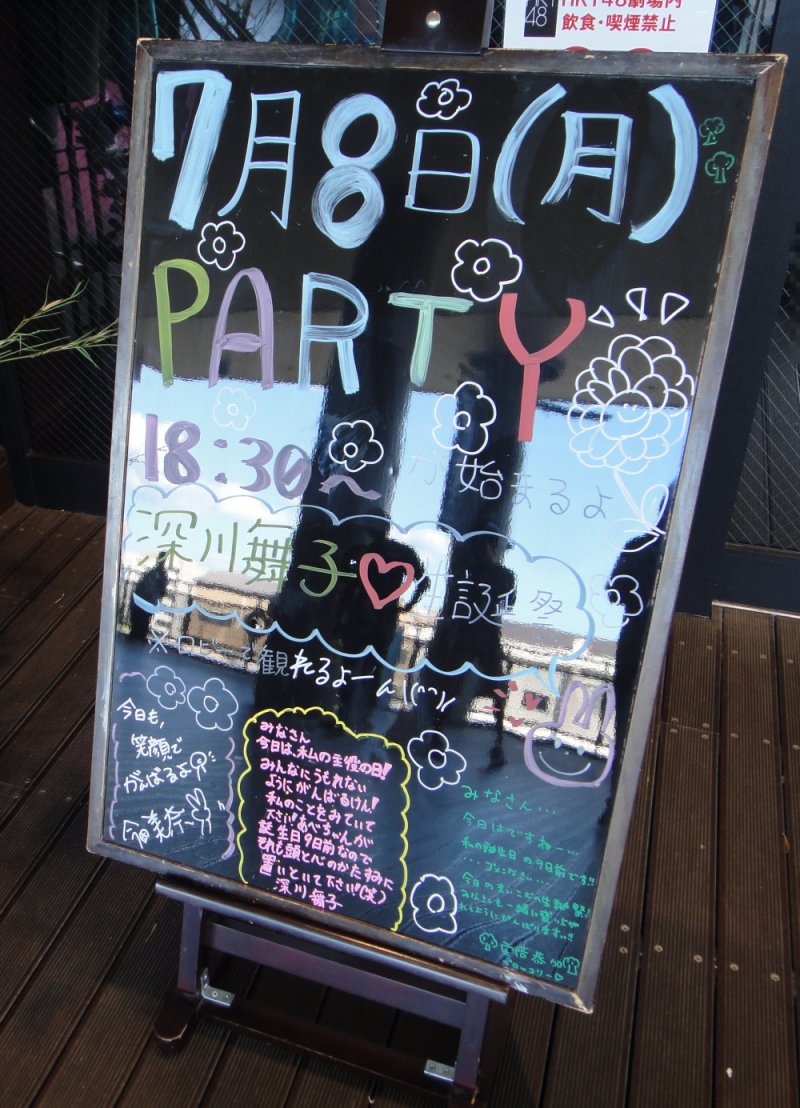 HKT48劇場内
飲食・喫煙禁止
7月8日(月)
PARTY
18:30〜が始まるよ
深川舞子♡生誕祭
※ロビーで観れるよーん\(^^)/
今日も、
笑顔で
がんばるよ
みなさん
今日は、私の主役の日!
みんなにうもれない
ようにがんばるけん!
私のことをみていて
下さい!あべちゃんが
誕生日9日前なので
それも頭と心のかたすみに
置いといて下さい!(笑)
深川舞子
みなさん...
今日はですね...
私の誕生日の9日前です!!
...すみません
今日のまいこむの生誕祭!
みなさんと一緒に
がんばります!!
ブロッコリー♡